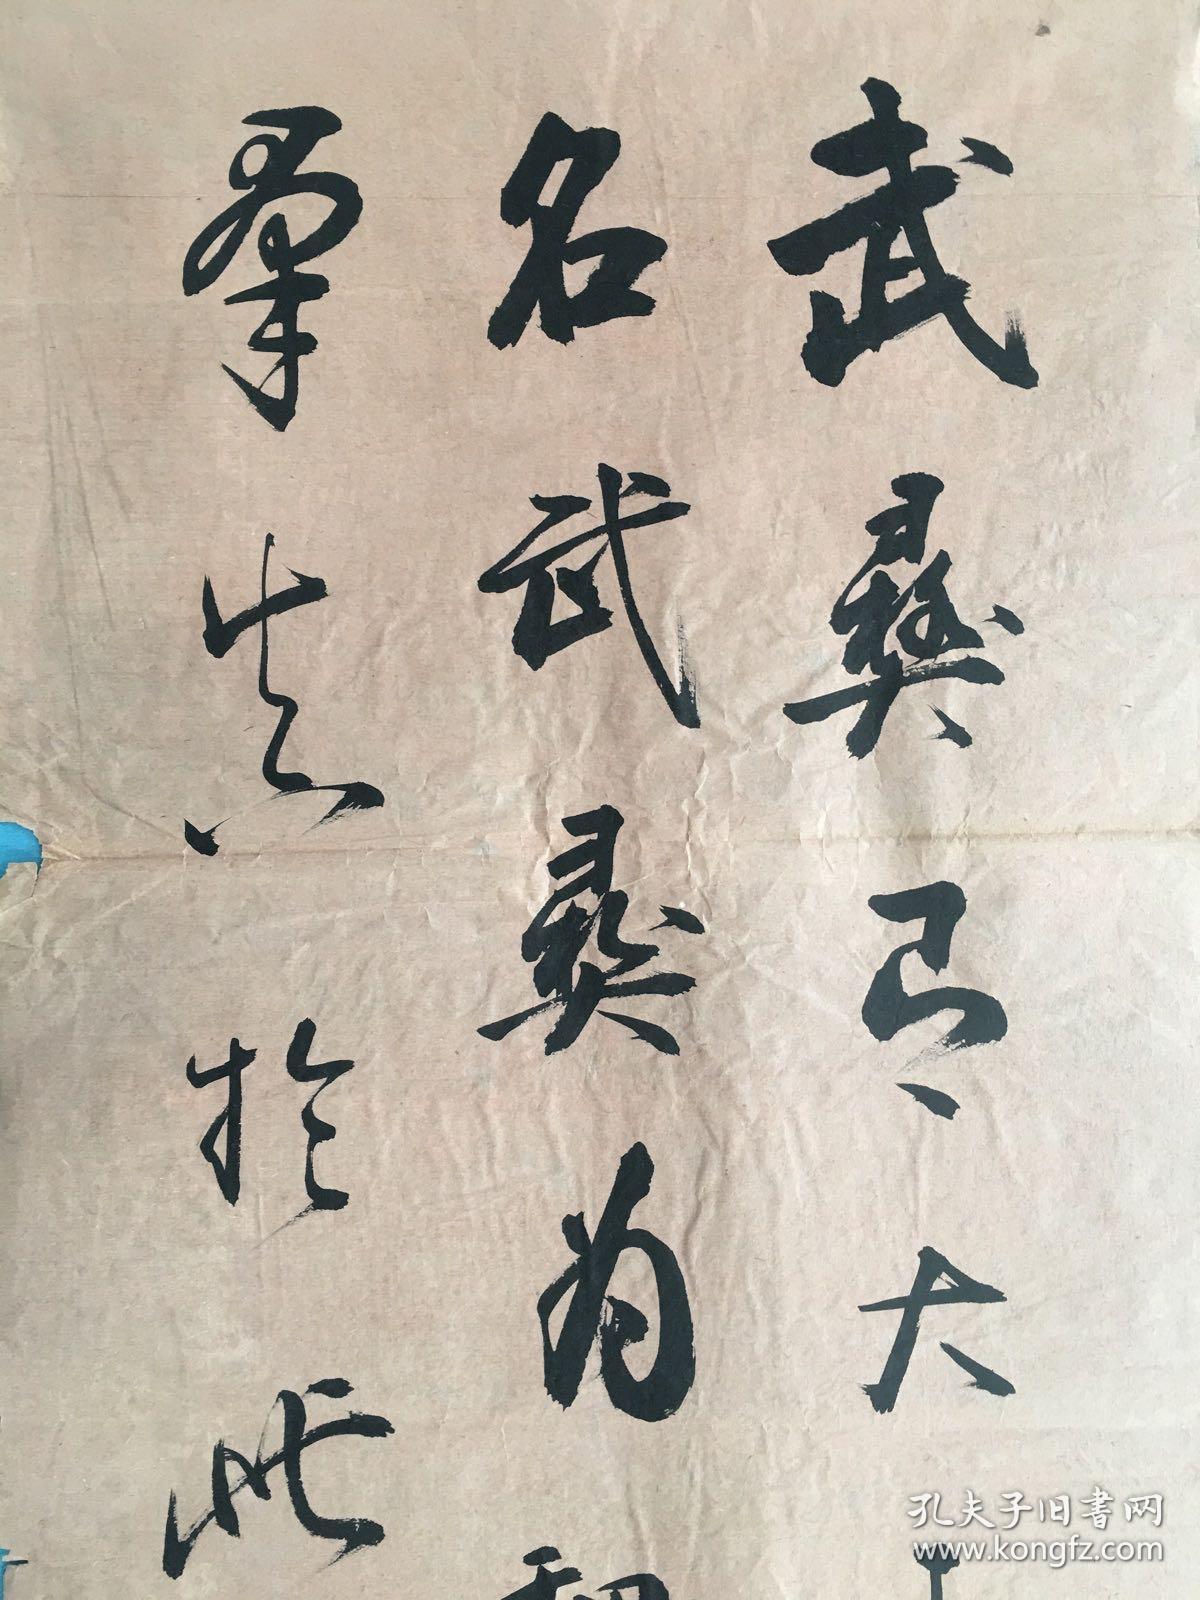 武彝君大
名武彝為
羣真於此
孔夫子旧书网
www.kongfz.com